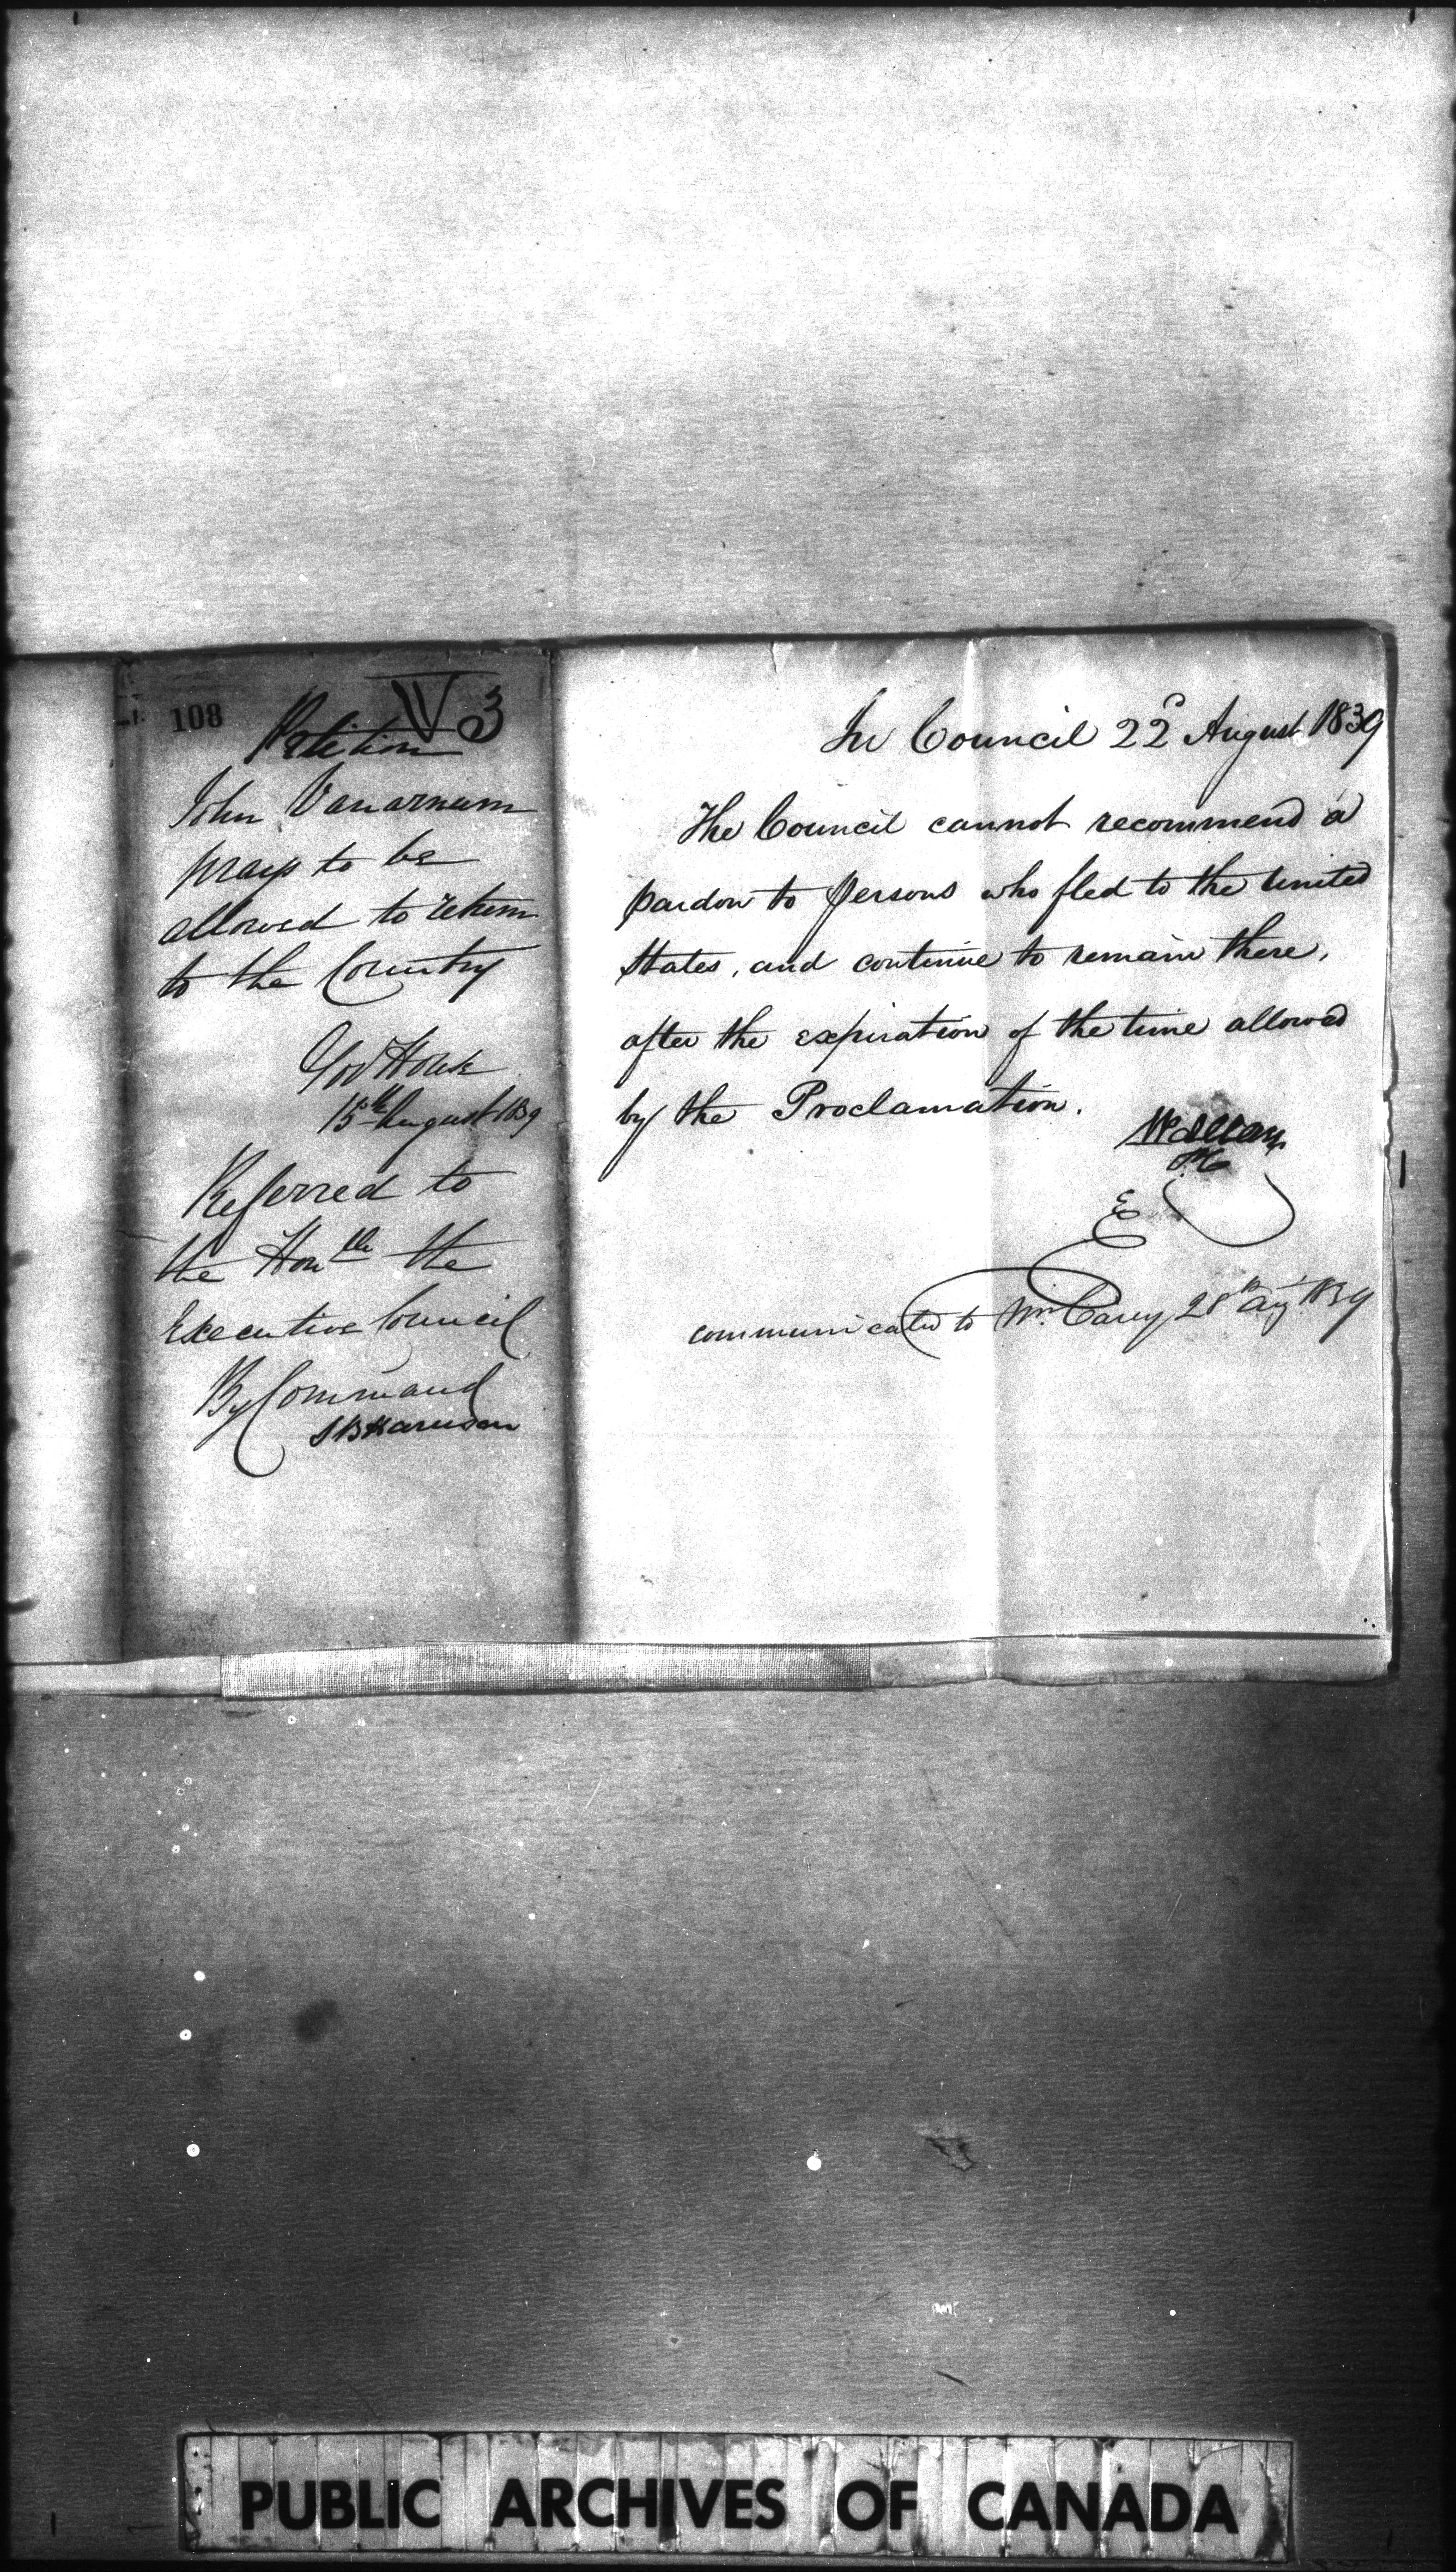 108
V 3
Petition
John Vanarnum
prays to be
allowed to return
to the Country
Gov House
15th August 1839
Referred to
the Honble the
Executive Council
By Command
S B Harrison
In Council 22d August 1839
The Council cannot recommend a
pardon to persons who fled to the United
States, and continue to remain there,
after the expiration of the time allowed
by the Proclamation.
W Allan
PC
E
communicated to Mr. Carey 28th Aug 1839
PUBLIC ARCHIVES OF CANADA